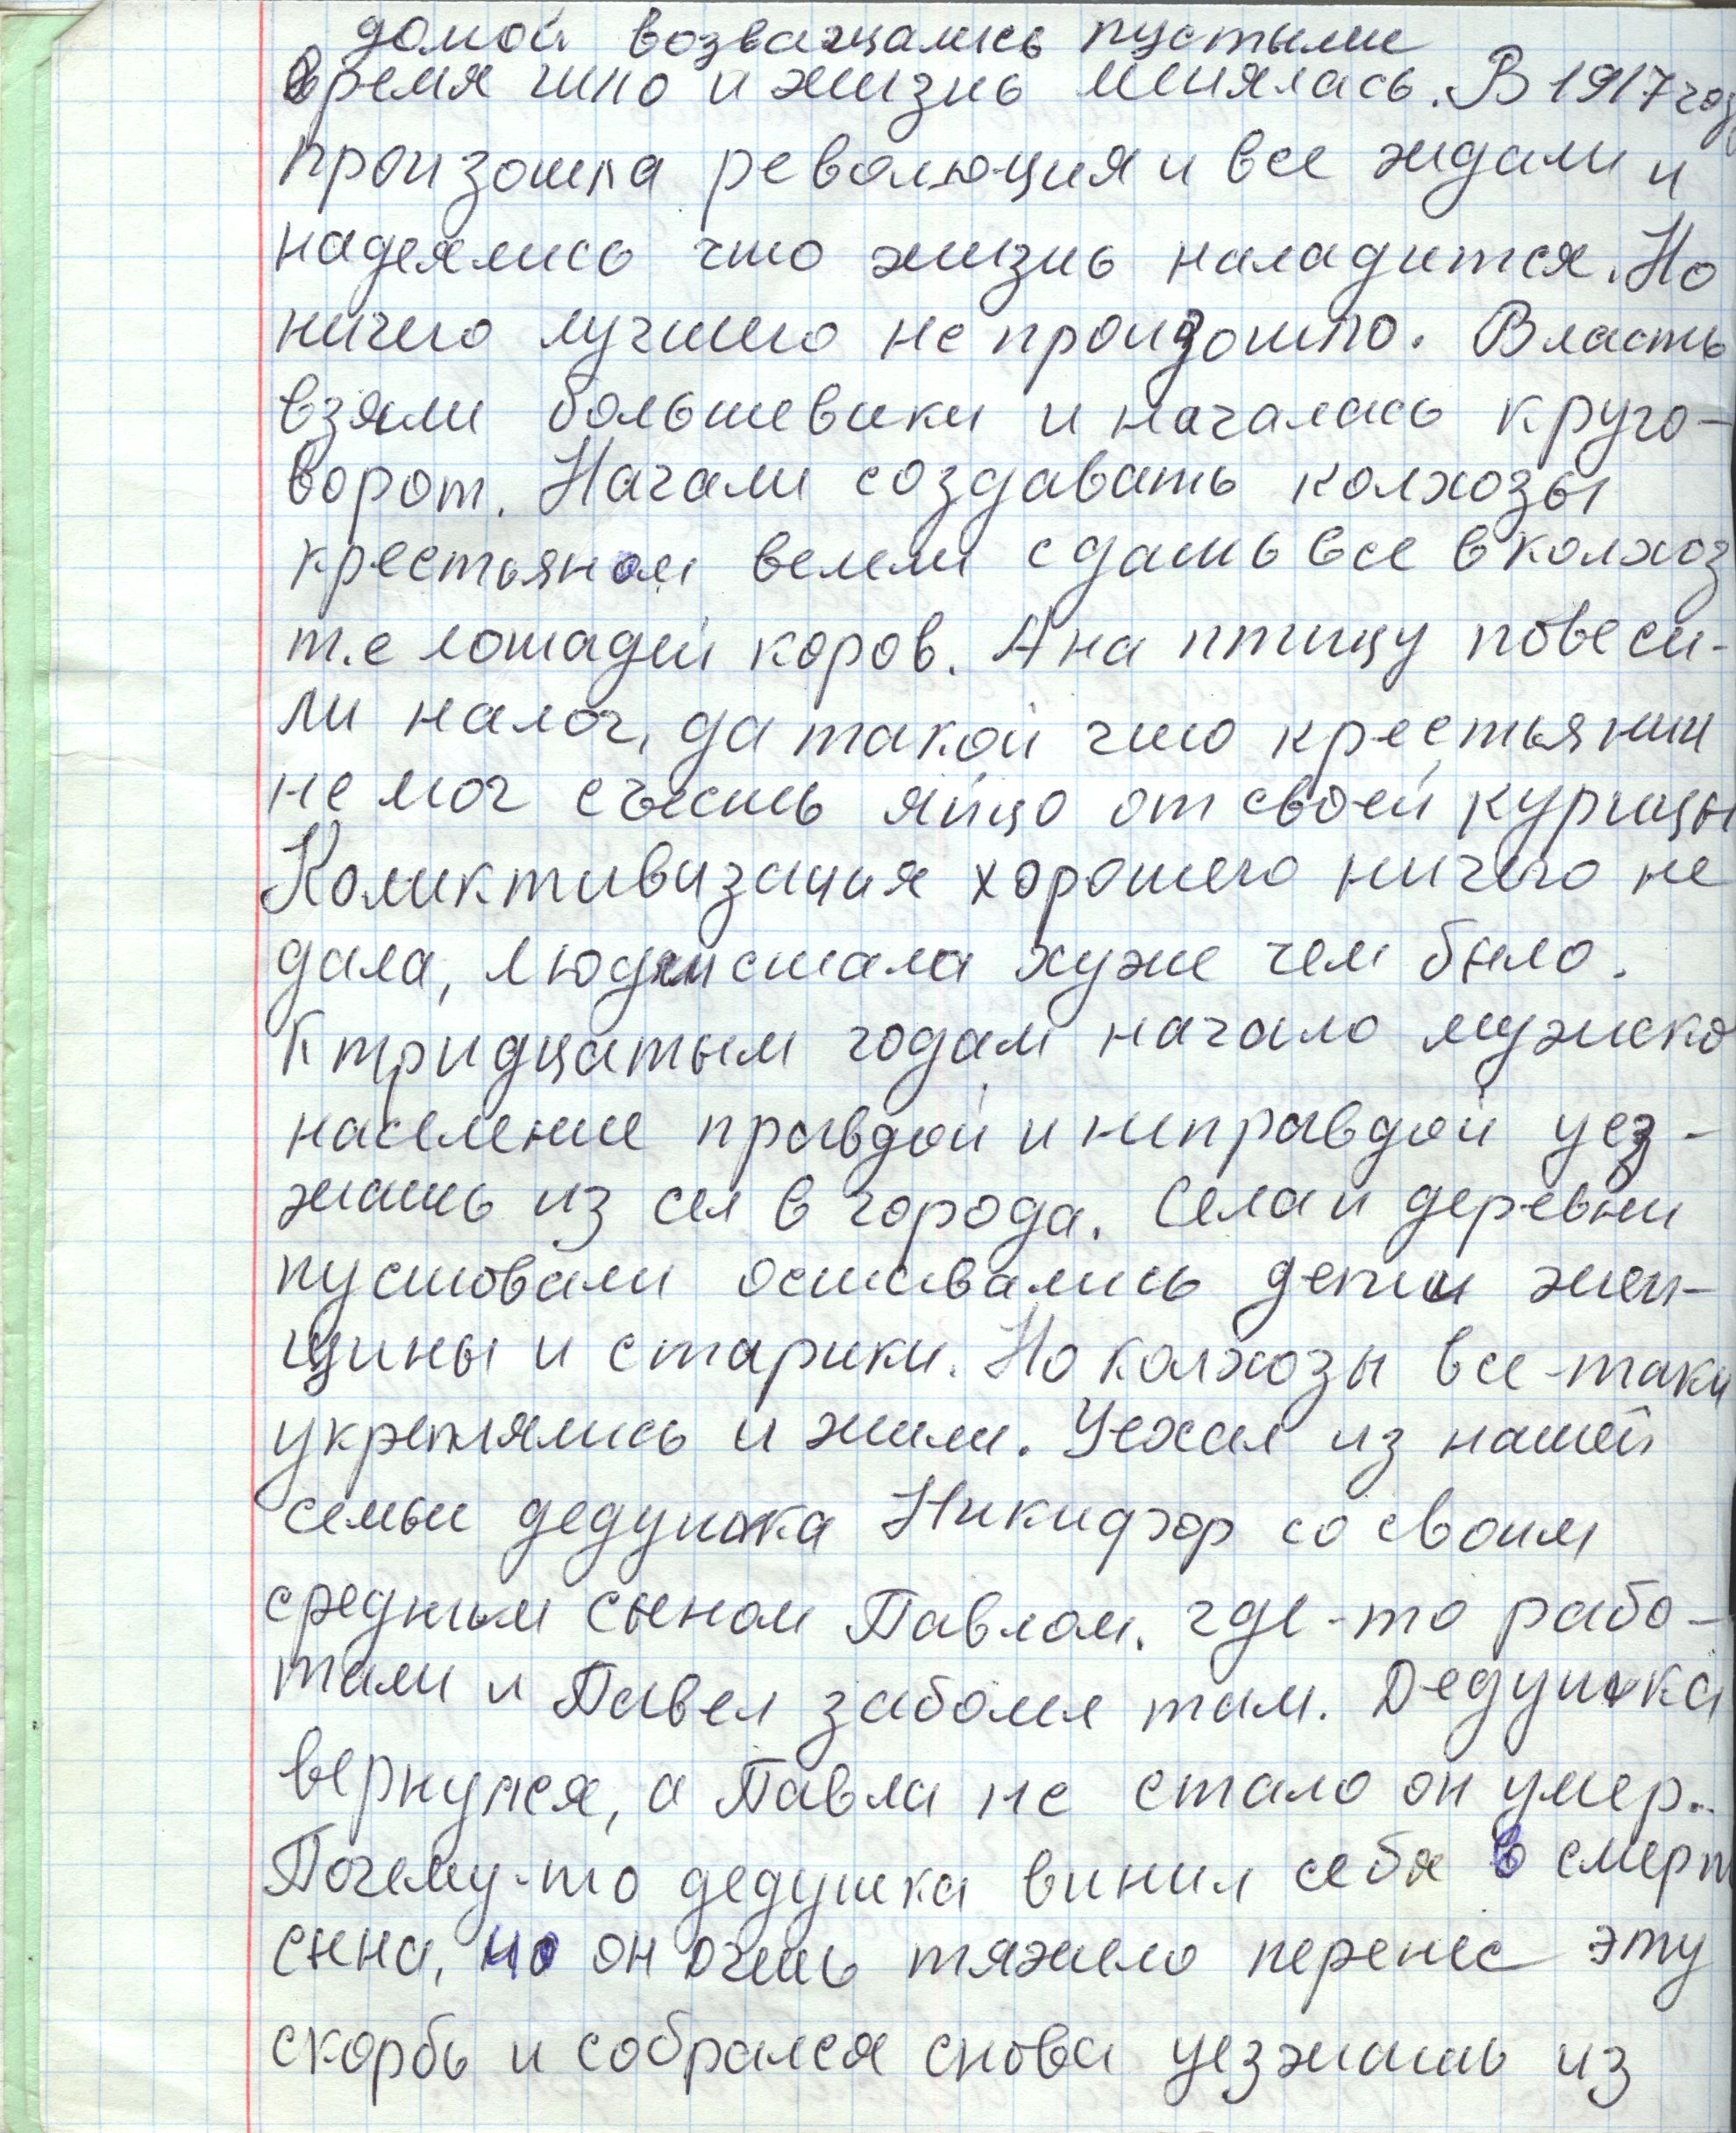 домой возващались пустыми
Время шло и жизнь менялась. В 1917 год
произошла революция и все ждали и
надеялись что жизнь наладится. Но
ничего лучшего не произошло. Власть
взяли большевики и началась круго-
ворот. Начали создавать колхозы
крестьяном велели сдать все в колхоз
т.е лошадей коров. А на птицу повеси-
ли налог, да такой что крестьянин
не мог съесть яйцо от своей курицы
Коликтивизация хорошего ничего не
дала, людям стала хуже чем было.
К тридцатым годам начало мужско
население правдой и неправдой уез-
жать из сел в города. Села и деревни
пустовали оставались дети жен-
щины и старики. Но колхозы все-таки
укреплялись и жили. Уехал из нашей
семьи дедушка Никифор со своим
средним сыном Павлом. где-то рабо-
тали и Павел заболел там. Дедушка
вернулся, а Павла не стало он умер..
Почему-то дедушка винил себя в смерт
сына, но он очень тяжело перенес эту
скорбь и собрался снова уезжать из